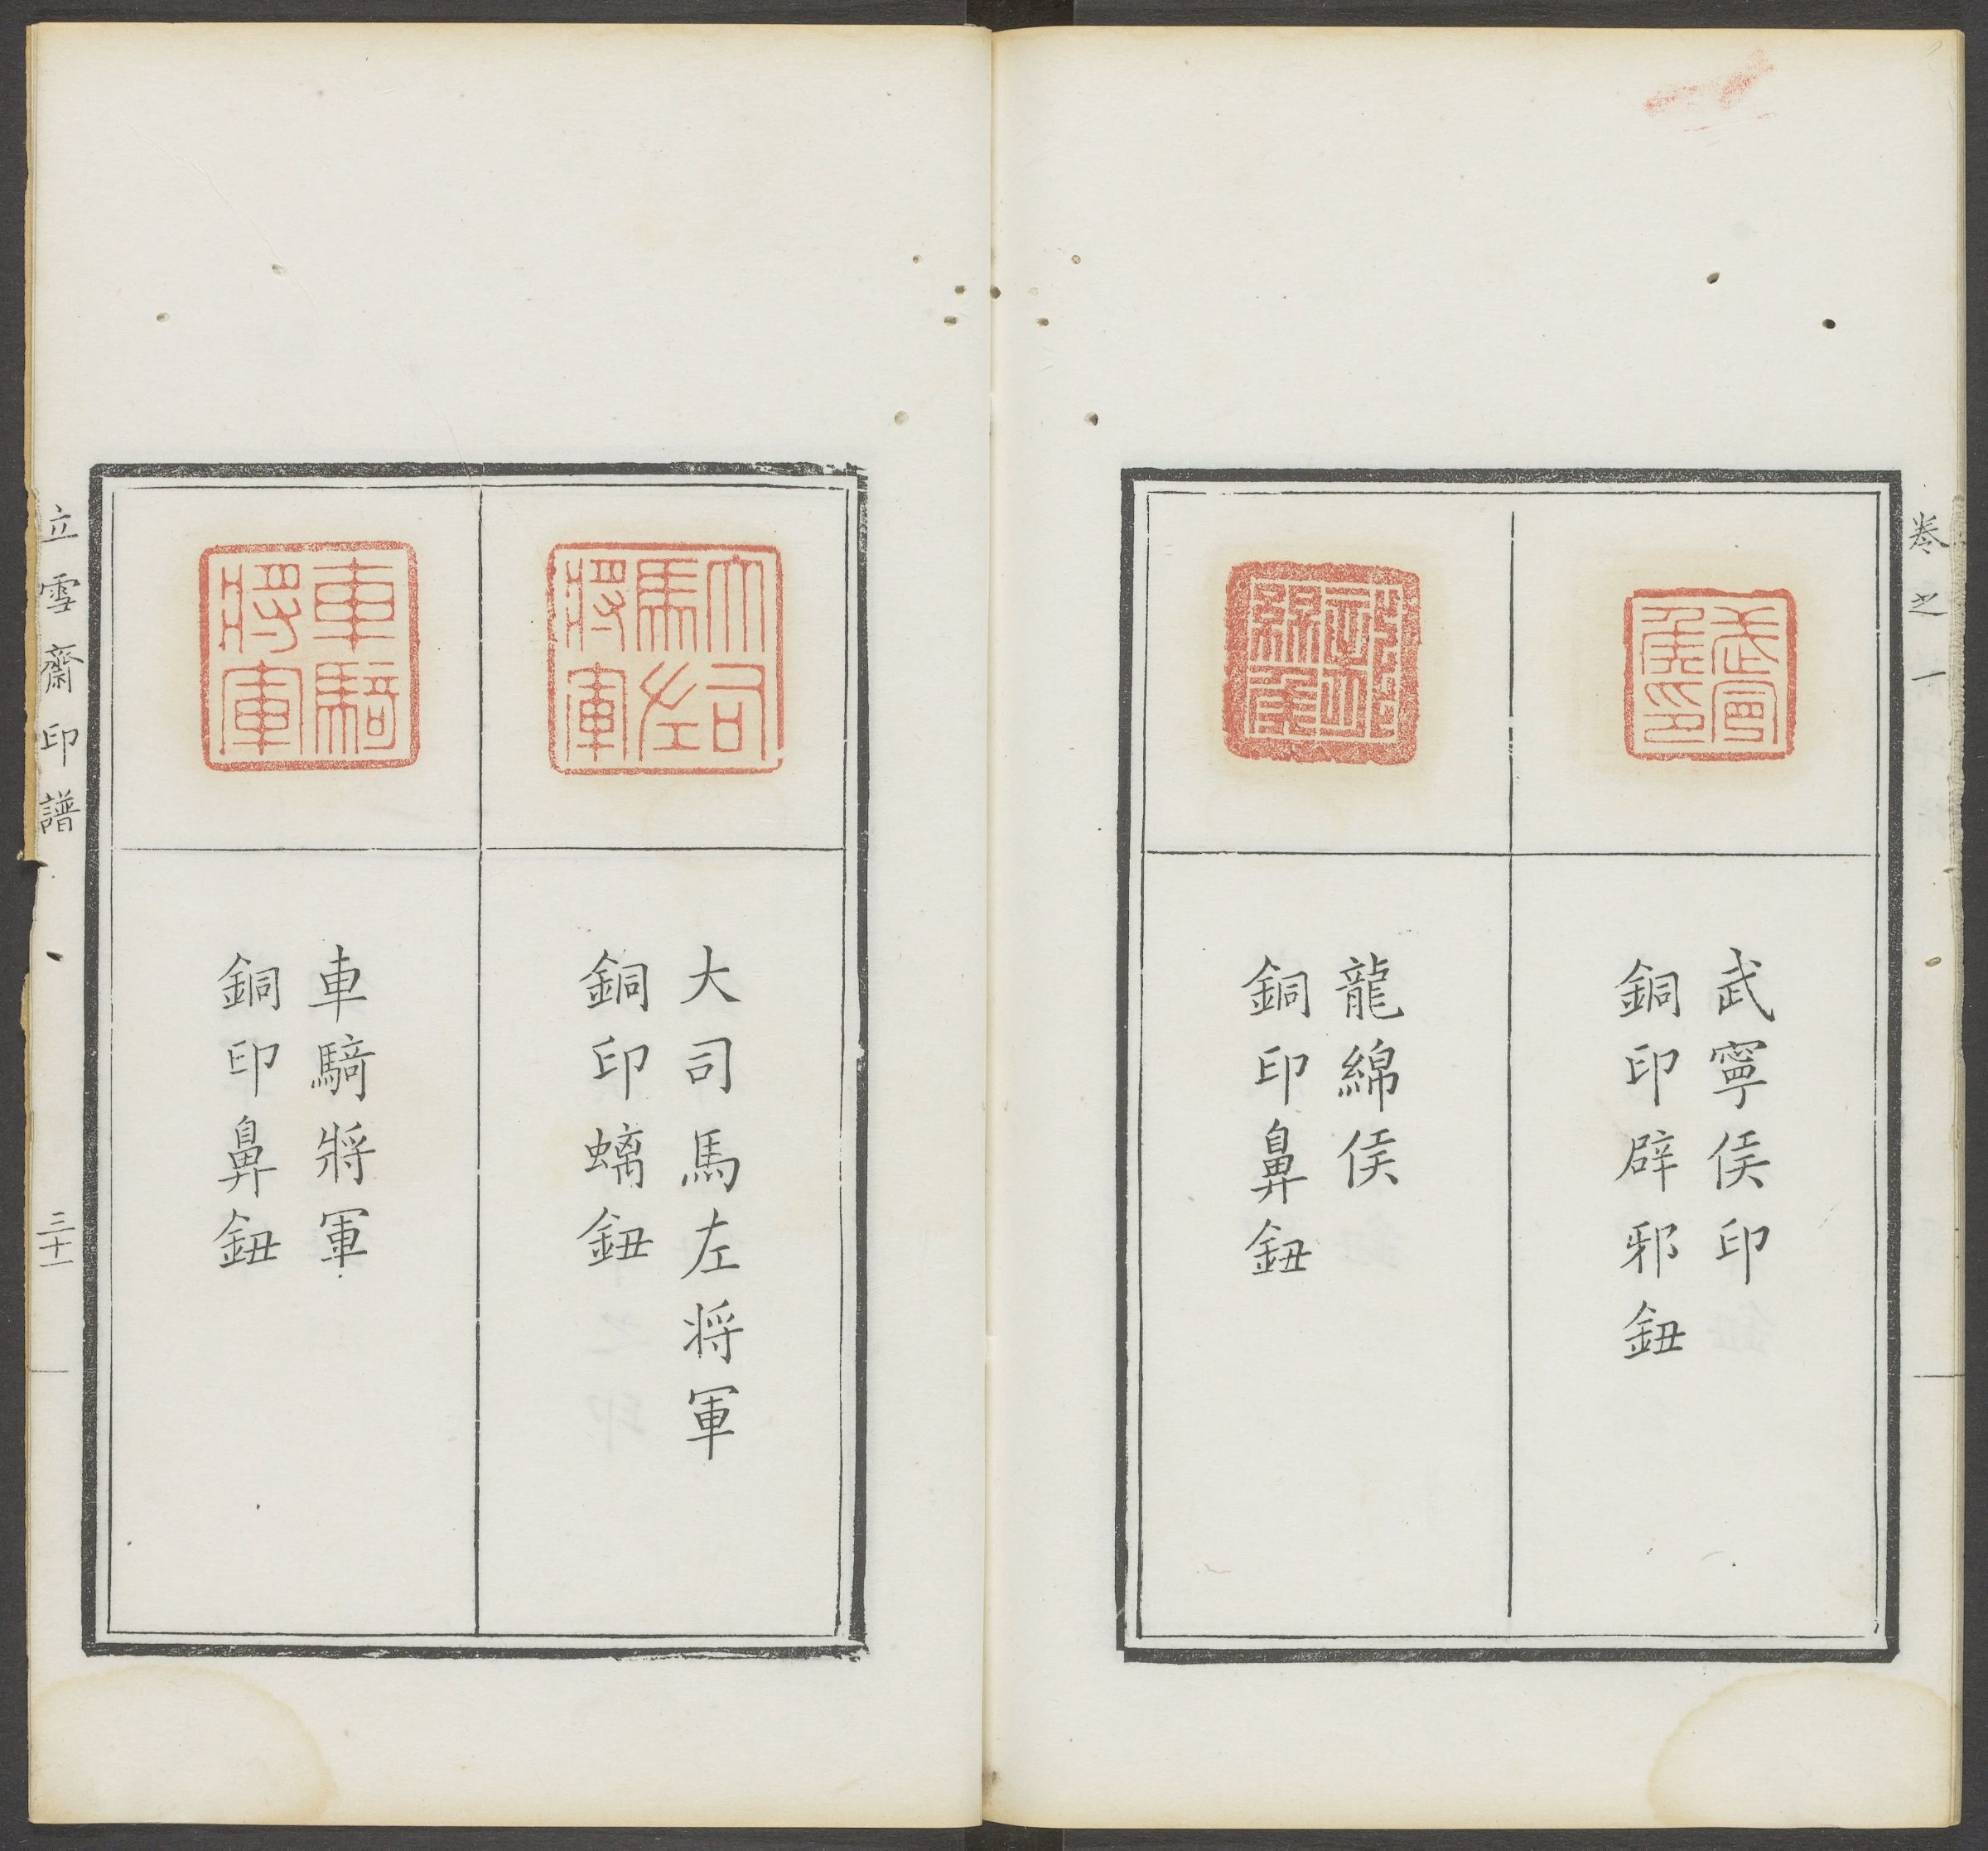 卷之一
武寧侯印
武寧侯印
銅印辟邪鈕
龍綿侯
龍綿侯
銅印鼻鈕
大司馬左將軍
大司馬左将軍
銅印螭鈕
車騎將軍
車騎將軍
銅印鼻鈕
立雪齋印譜
三十一